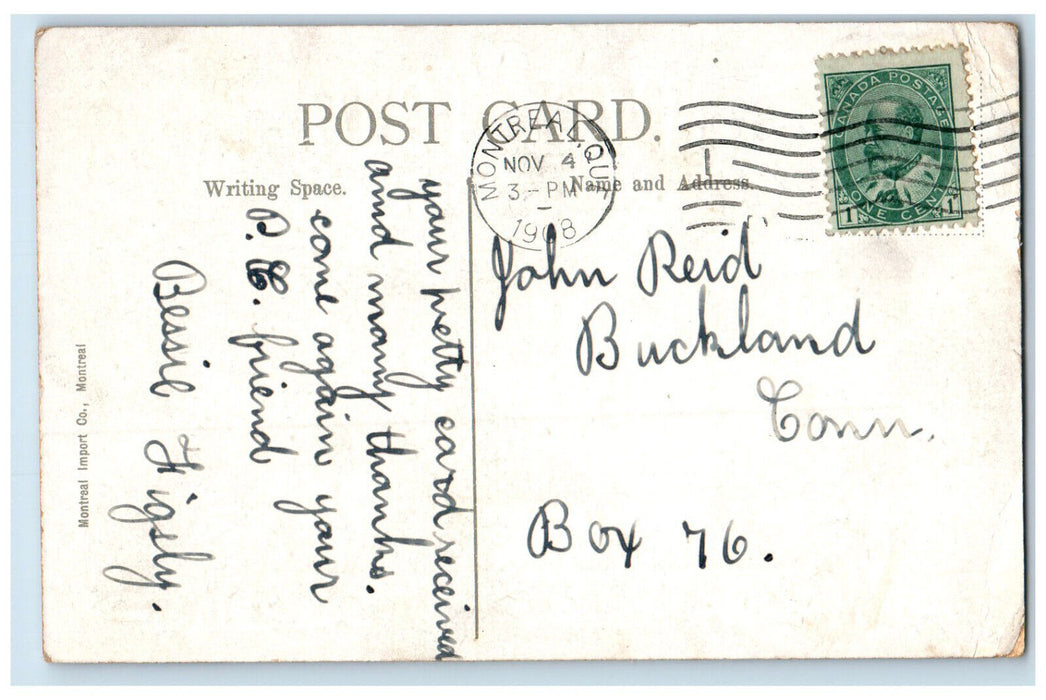 POST CARD.
Writing Space.
Name and Address.
MONTREAL, QUE
NOV 4
3-PM
1908
CANADA POSTAGE
ONE CENT
1 1
John Reid
Buckland
Conn.
Box 76.
your pretty card received
and many thanks.
come again your
P.C. friend
Bessie Figsly.
Montreal Import Co., Montreal